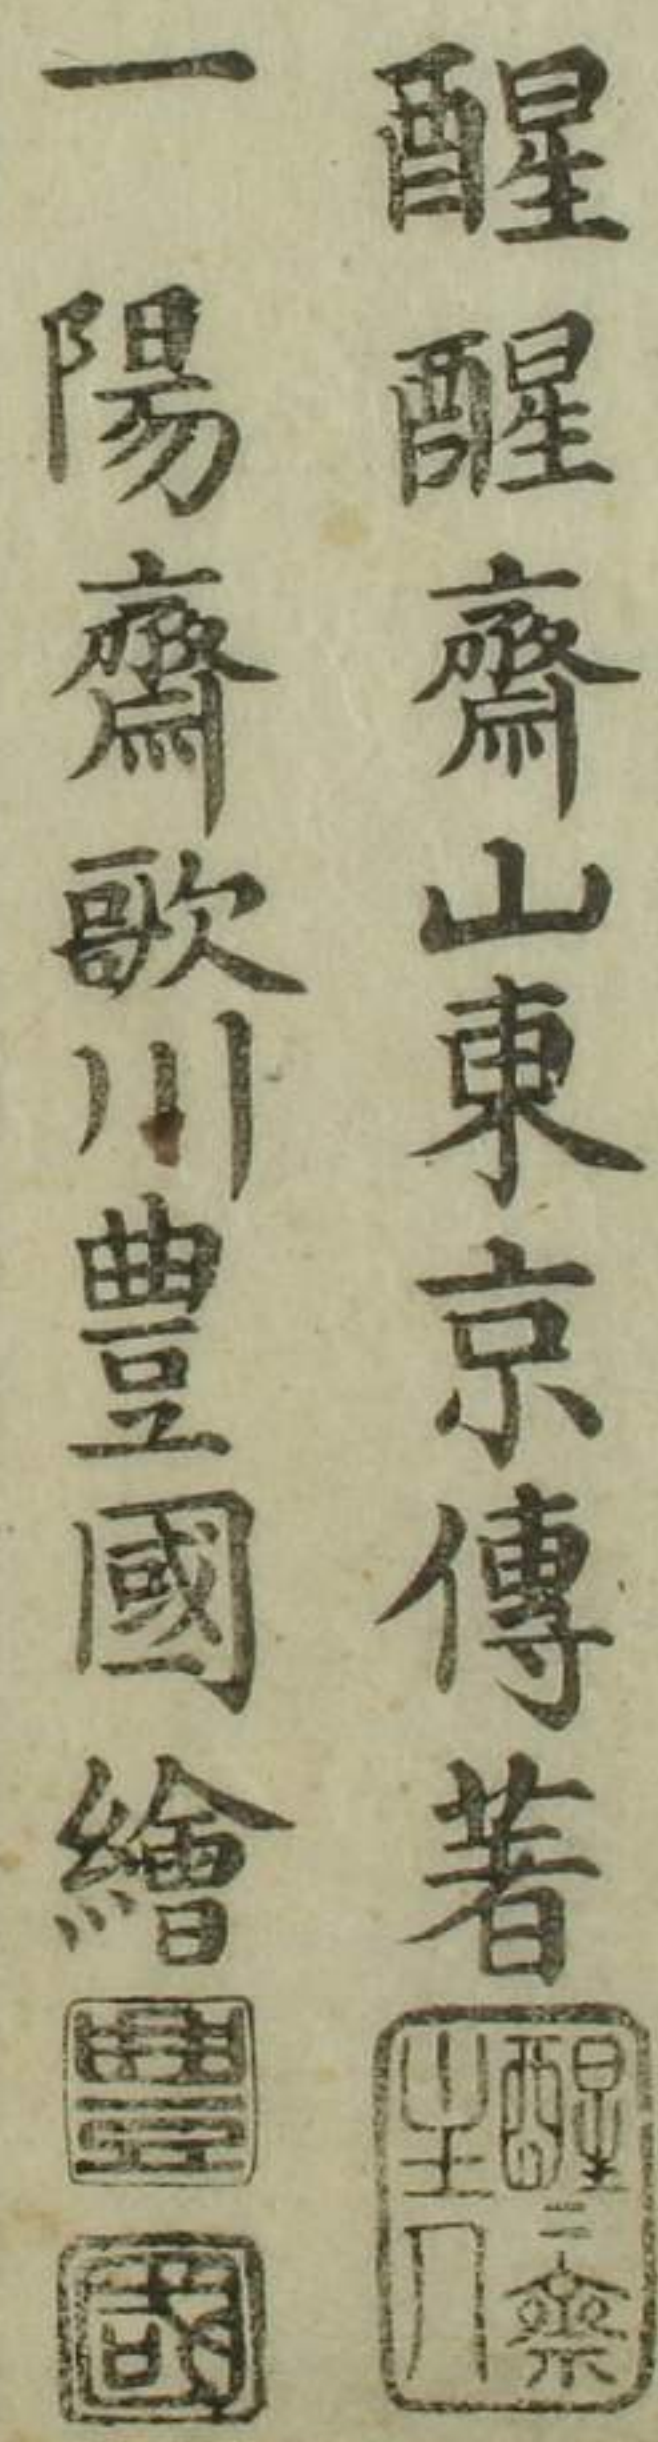 醒醒齋山東京傳著
醒〻齋主人
一陽齋歌川豊國繪
豊
國